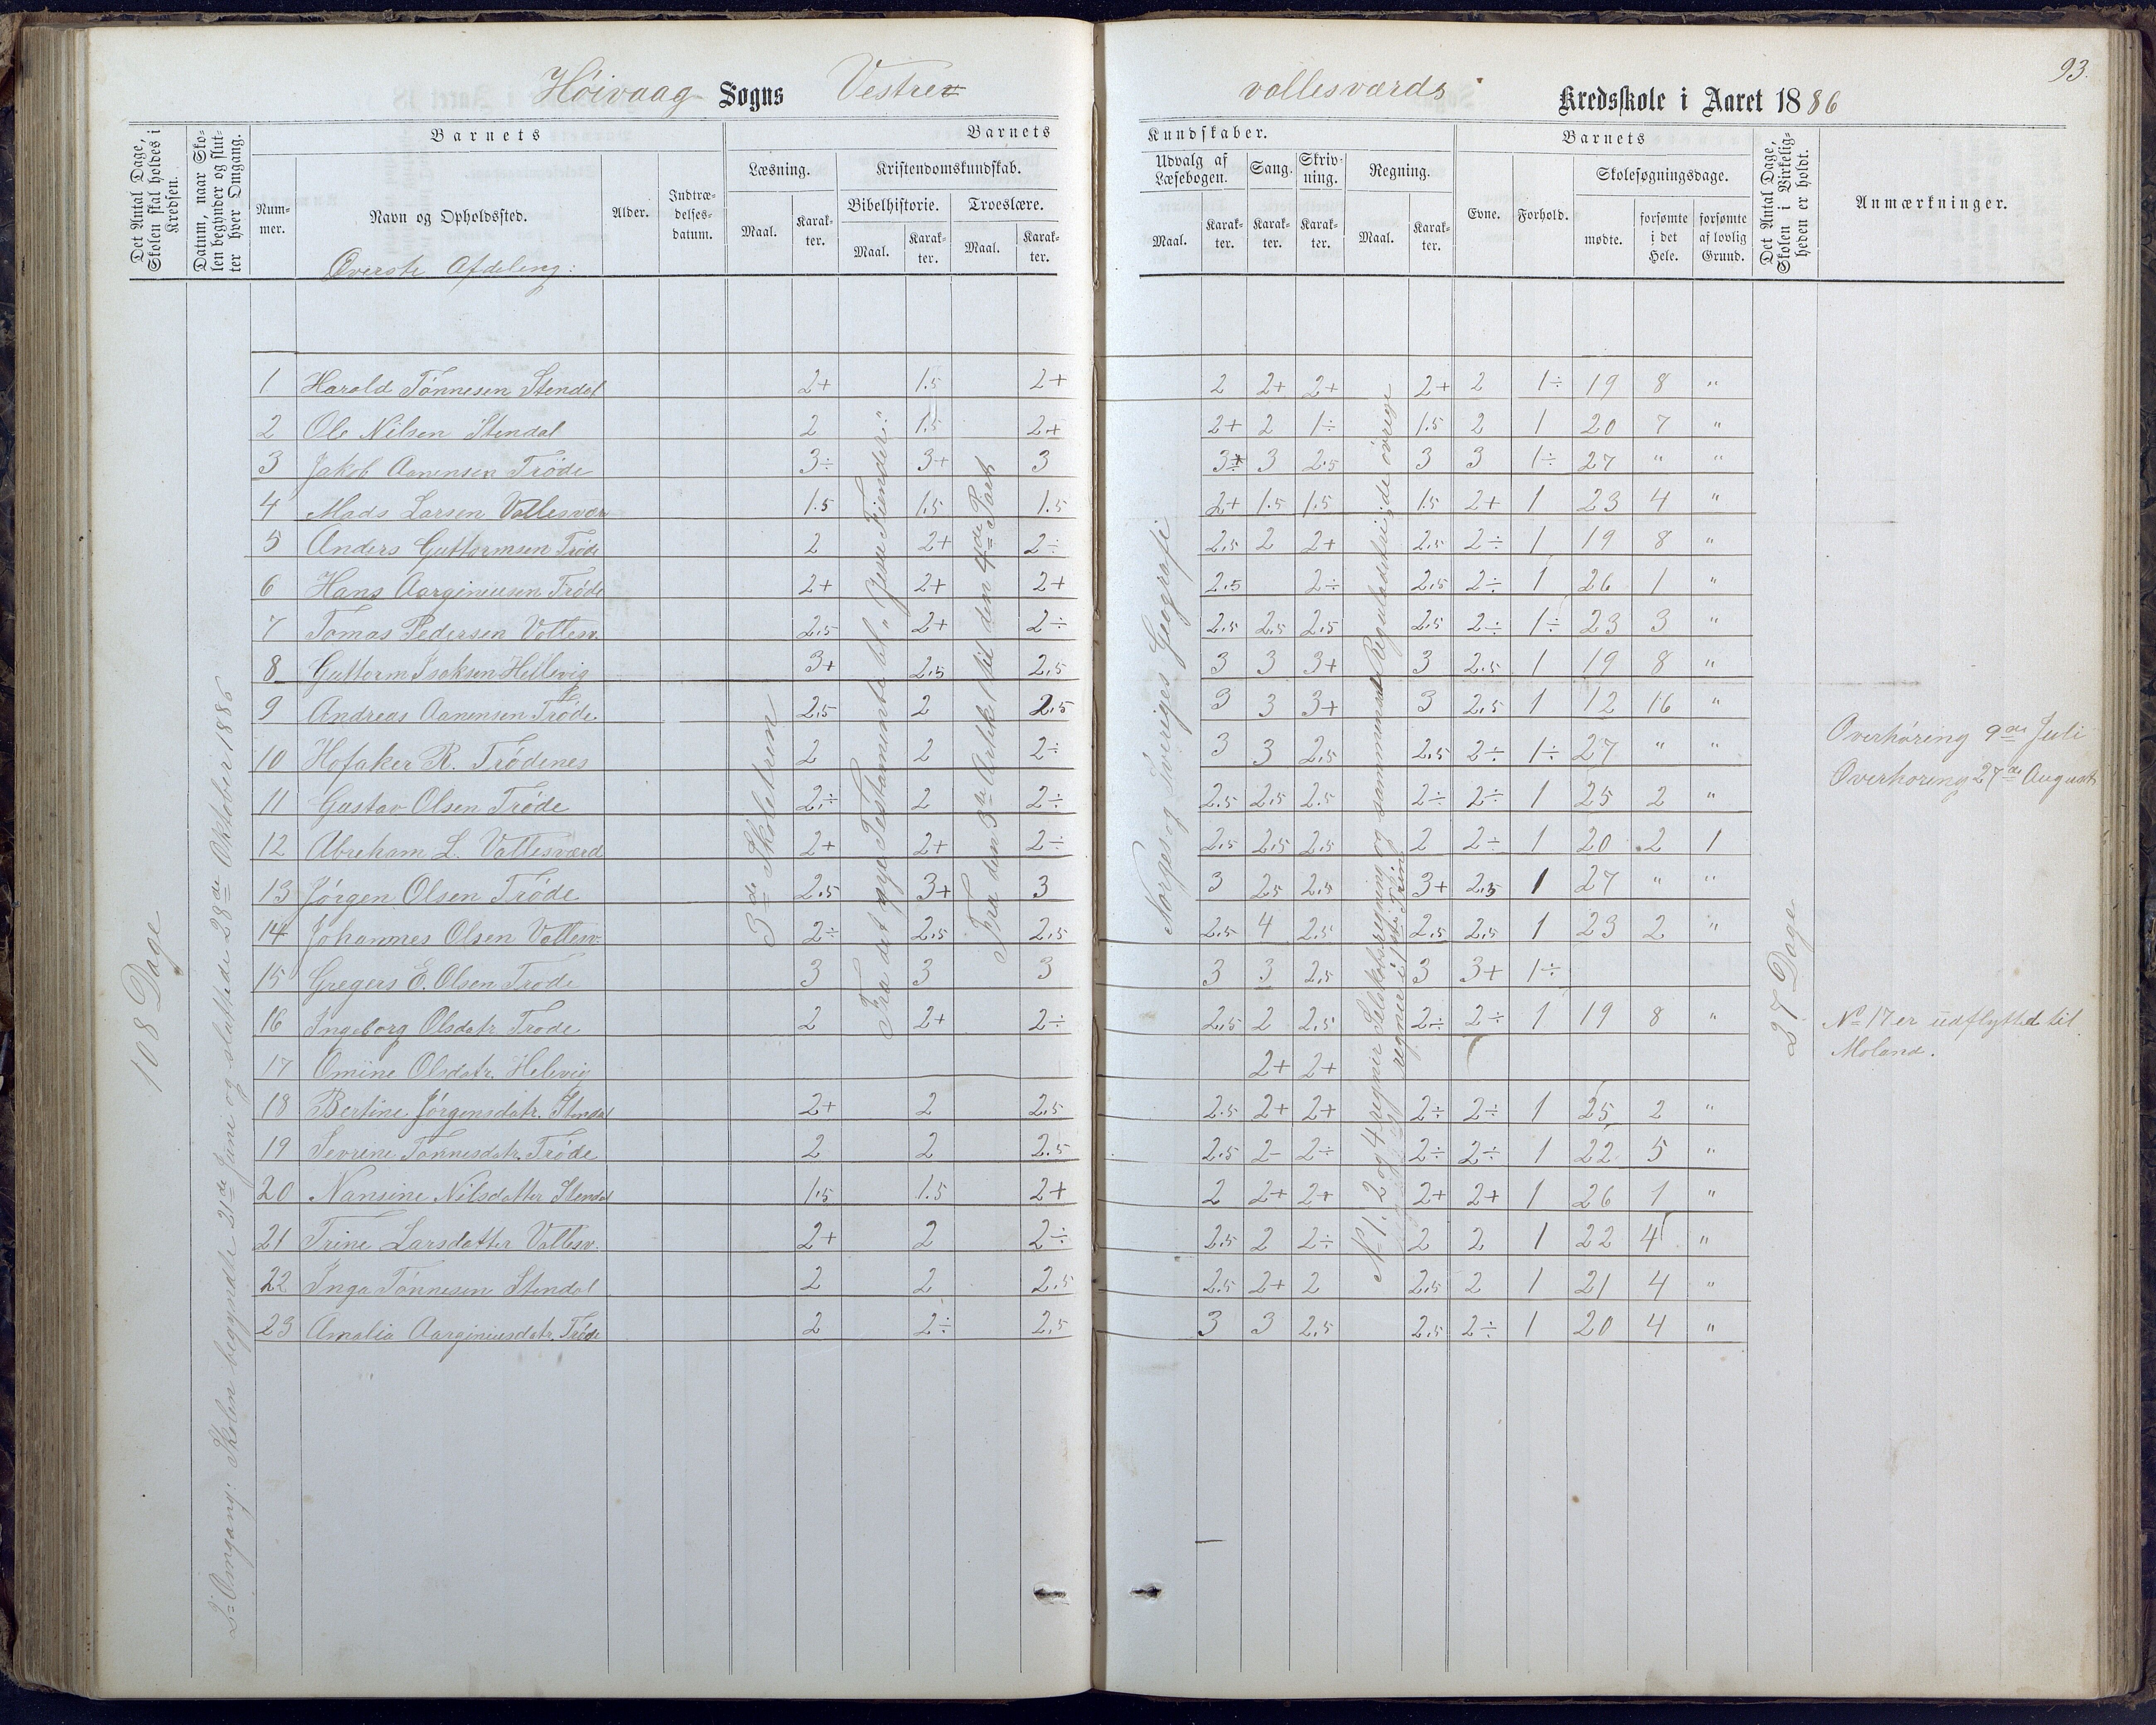 93.
Höivaag Sogns Vestre vollesværds Kredsskole i Aaret 1886
Det Antal Dage, Skolen skal holdes i Kredsen.
Datum, naar Skolen begynder og slutter hver Omgang.
Barnets
Barnets Kundskaber.
Barnets
Nummer.
Navn og Opholdssted.
Alder.
Indtrædelsesdatum.
Læsning.
Kristendomskundskab.
Bibelhistorie.
Troeslære.
Udvalg af Læsebogen.
Sang.
Skrivning.
Regning.
Evne.
Forhold.
Skolesøgningsdage.
Maal. Karakter. Maal. Karakter. Maal. Karakter. Maal. Karakter. Karakter. Karakter. Maal. Karakter.
mødte.
forsømte i det Hele.
forsømte af lovlig Grund.
Det Antal Dage, Skolen i Virkeligheden er holdt.
Anmærkninger.
Øverste Afdeling:
1 Harald Tönnesen Stendal 2+ 1.5 2+ 2 2+ 2+ 2+ 2 1÷ 19 8 "
2 Ole Nilsen Stendal 2 1.5 2+ 2+ 2 1÷ 1.5 2 1 20 7 "
3 Jakob Aanensen Tröde 3÷ 3+ 3 3÷ 3 2.5 3 3 1÷ 27 " "
4 Mads Larsen Vollesvær 1.5 1.5 1.5 2+ 1.5 1.5 1.5 2+ 1 23 4 "
5 Anders Guttormsen Tröde 2 2+ 2÷ 2.5 2 2+ 2.5 2÷ 1 19 8 "
6 Hans Aarginiusen Tröde 2+ 2+ 2+ 2.5 2÷ 2.5 2÷ 1 26 1 "
7 Tomas Pedersen Vollesv. 2.5 2+ 2÷ 2.5 2.5 2.5 2.5 2÷ 1÷ 23 3 "
8 Guttorm Isaksen Hellevig 3+ 2.5 2.5 3 3 3+ 3 2.5 1 19 8 "
9 Andreas Aanensen Tröde 2.5 2 2.5 3 3 3+ 3 2.5 1 12 16 "
10 Hofaker R. Trödenes 2 2 2÷ 3 3 2.5 2.5 2÷ 1÷ 27 " "
11 Gustav Olsen Tröde 2÷ 2 2÷ 2.5 2.5 2.5 2÷ 2÷ 1 25 2 "
12 Abreham L. Vollesværd 2+ 2+ 2÷ 2.5 2.5 2.5 2 2÷ 1 20 2 1
13 Jörgen Olsen Tröde 2.5 3+ 3 3 2.5 2.5 3+ 2.5 1 27 " "
14 Johannes Olsen Vollesv. 2÷ 2.5 2.5 2.5 4 2.5 2.5 2.5 1 23 2 "
15 Gregers E. Olsen Tröde 3 3 3 3 3 2.5 3 3+ 1÷
16 Ingeborg Olsdatr Tröde 2 2+ 2÷ 2.5 2 2.5 2÷ 2÷ 1 19 8 "
17 Omine Olsdatr. Helevig 2+ 2+
18 Bertine Jörgensdatr. Stendal 2+ 2 2.5 2.5 2+ 2+ 2÷ 2÷ 1 25 2 "
19 Sevrine Tönnesdatr. Tröde 2 2 2.5 2.5 2- 2÷ 2÷ 2÷ 1 22 5 "
20 Nansine Nilsdatter Stendal 1.5 1.5 2+ 2 2+ 2+ 2+ 2+ 1 26 1 "
21 Trine Larsdatter Vollesv. 2+ 2 2÷ 2.5 2 2÷ 2 2 1 22 4 "
22 Inga Tönnesen Stendal 2 2 2.5 2.5 2+ 2 2.5 2 1 21 4 "
23 Amalia Aarginiusdatr. Tröde 2 2÷ 2.5 3 3 2.5 2.5 2÷ 1 20 4 "
108 Dage
2= Omgang: Skolen begyndte 21de Juni og sluttede 28de Oktober 1886
3de Skoletrin
Fra det nye Testamente til "Jesu Fiender."
Fra den 3de Artikel til den 4de Part
Norges og Sveriges Geografi
No 1, 2 og 4 regner Selskabsregning og sammensat Reguladetri; de övrige
regner i 1ste Trin.
27 Dage
Overhöring 9de Juli
Overhöring 27de August
No 17 er udflyttet til
Moland.